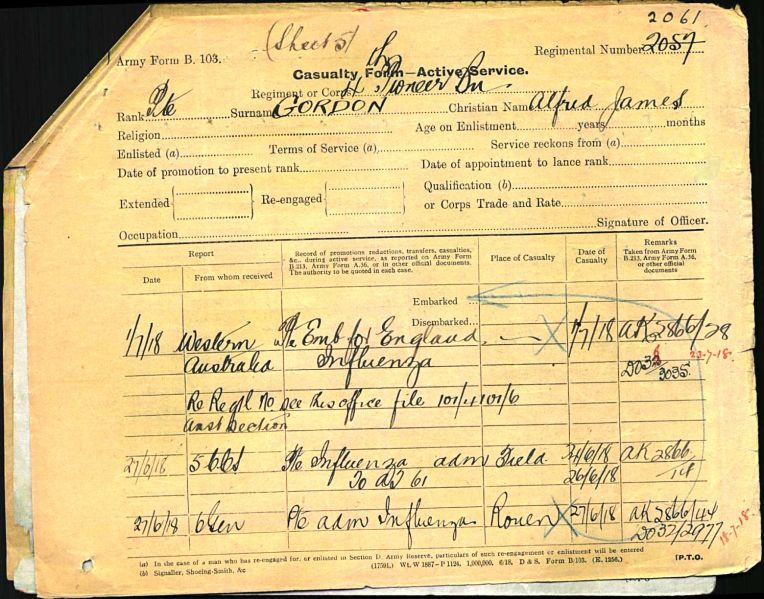 2061
(Sheet 5)
Army Form B. 103.
Regimental Number 2057
Casualty Form—Active Service.
Regiment or Corps 4th Pioneer Bn.
Rank Pte Surname GORDON Christian Name Alfred James
Religion Age on Enlistment years months
Enlisted (a) Terms of Service (a) Service reckons from (a)
Date of promotion to present rank Date of appointment to lance rank
Extended Re-engaged Qualification (b)
or Corps Trade and Rate
Occupation Signature of Officer.
Report
Date From whom received
Record of promotions, reductions, transfers, casualties,
&c., during active service, as reported on Army Form
B.213, Army Form A.36, or in other official documents.
The authority to be quoted in each case.
Place of Casualty
Date of
Casualty
Remarks
Taken from Army Form
B.213, Army Form A.36,
or other official
documents
Embarked
Disembarked
1/7/18 Western Pte Emb for England 1/7/18 AK 2866/28
Australia Influenza 23-7-18.
3035
Re Regtl No see this office file 101/4101/6
Anst Section
27/6/18 5 CCS Pte Influenza adm Field 24/6/18 AK 2866
To AT 61 26/6/18 /14
27/6/18 6 Gen Pte adm Influenza Rouen 27/6/18 AK 2866/44
DO37/2977 18-7-18.
(a) In the case of a man who has re-engaged for, or enlisted to Section D. Army Reserve, particulars of such re-engagement or enlistment will be entered
(b) Signaller, Shoeing-Smith, &c
(17591.) Wt. W 1887—P 1124. 1,000,000. 6/18. D & S. Form B/103. (E. 1256.) [P.T.O.